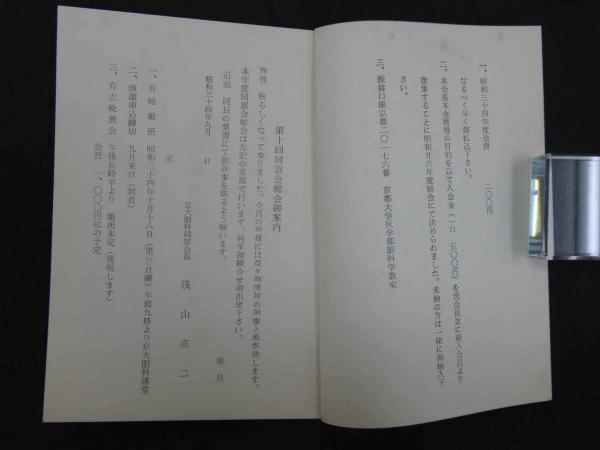 一、昭和三十四年度会費　二〇〇円
なるべく早く御払込下さい。
二、本会基本金獲得の目的を以て入会金(一口　五〇〇円)を現会員並に新入会員より
徴集することに昭和廿六年度総会にて決められました。未納の方は一緒に御納入下
さい。
三、振替口座京都二〇一七六番　京都大学医学部眼科学教室
第十回同窓会総会御案内
拝啓　秋らしくなって参りました。会員の皆様には益々御清祥の御事と推察致します。
本年度同窓会総会は左記の要領で行います。何卒御繰合せ御出席下さい。
追而　同封の葉書にて御返事を賜るよう願います。
敬具
昭和三十四年九月　日
京大眼科同窓会長　浅山亮二
記
一、日時場所　昭和三十四年十月十八日(第三日曜)午前九時より京大眼科講堂
二、演題申込締切　九月末日(到着)
三、有志晩餐会　午後五時半より　場所未定(後報します)
会費　一、〇〇〇円位の予定